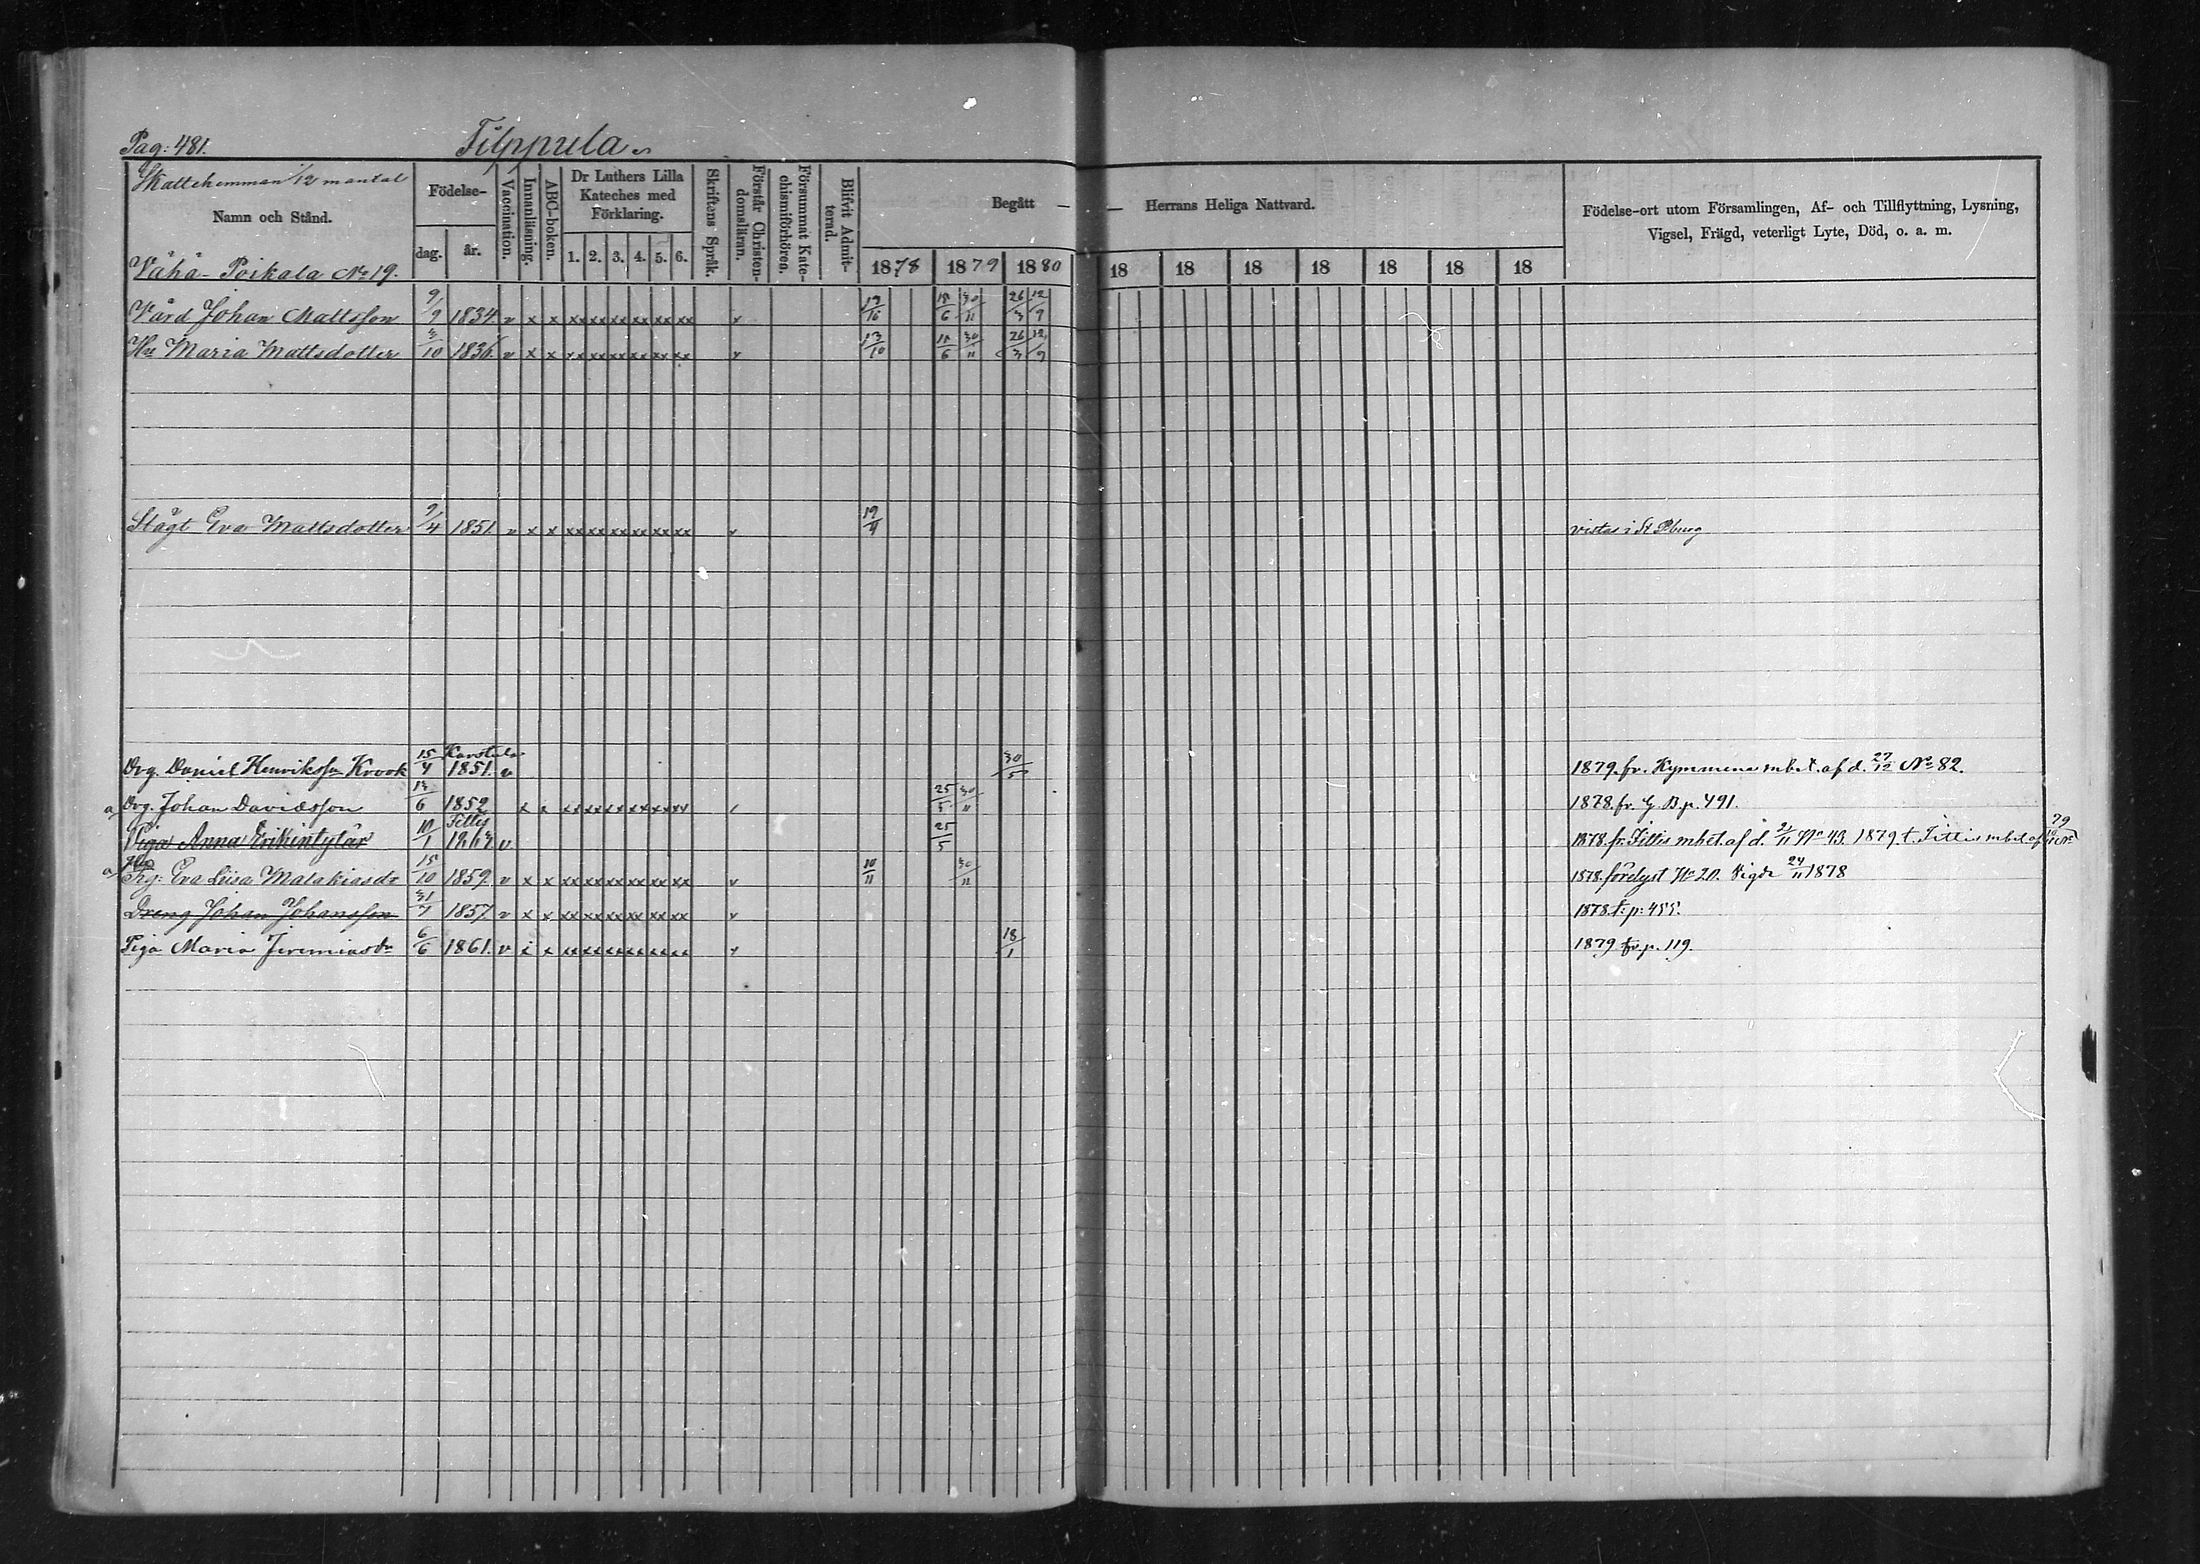 Pag: 481. Filppula
Skattehemman 1/12 mantal
Namn och Stånd.
Födelse-
dag. år.
Vaccination.
Innanläsning.
ABC-boken.
Dr Luthers Lilla
Kateches med
Förklaring.
1. 2. 3. 4. 5. 6.
Skriftens Språk.
Förstår Christen-
domsläran.
Försummat Kate-
chismiförhören.
Blifvit Admit-
terad.
Begått — — Herrans Heliga Nattvard.
1878 1879 1880 18 18 18 18 18 18 18
Födelse-ort utom Församlingen, Af- och Tillflyttning, Lysning,
Vigsel, Frägd, veterligt Lyte, Död, o. a. m.
Vähä-Poikala No 19.
Värd Johan Mattsson 9/9 1834 v x x xx xx xx xx xx xx v 15/6 30/11 26/3 12/9
Hu Maria Mattsdotter 3/10 1836 v x x xx xx xx xx xx xx v 13/10 15/6 30/11 26/3 12/9
Slägt Eva Mattsdotter 9/4 1851 v x x xx xx xx xx xx xx v vistas i St Pburg
Drg. Daniel Henriksson Krook 15/4 Karstula 1851. v 30/5 1879. fr. Kymmene mbet. af d. 27/12 No 82.
a Drg. Johan Davidsson 13/6 1852 x x xx xx xx xx xx xx 25/5 30/11 1878. fr. G. B. p. 491.
Piga Anna Erikintytär 10/1 v 25/5 1878. fr. mbet. af d. 2/11 No 43. 1879 t. mbet af
a Hu Eva Leisa Malakiasdr 15/10 1859. v x x xx xx xx xx xx xx v 10/11 30/11 1878. förelyst No 20. Vigde 24/11 1878
Dreng Johan Johansson 31/7 1857 v x x xx xx xx xx xx xx v 1878. t: p: 455.
Piga Maria Jeremiasdr 6/6 1861. v x x xx xx xx xx xx xx v 18/1 1879 fr. p. 119.